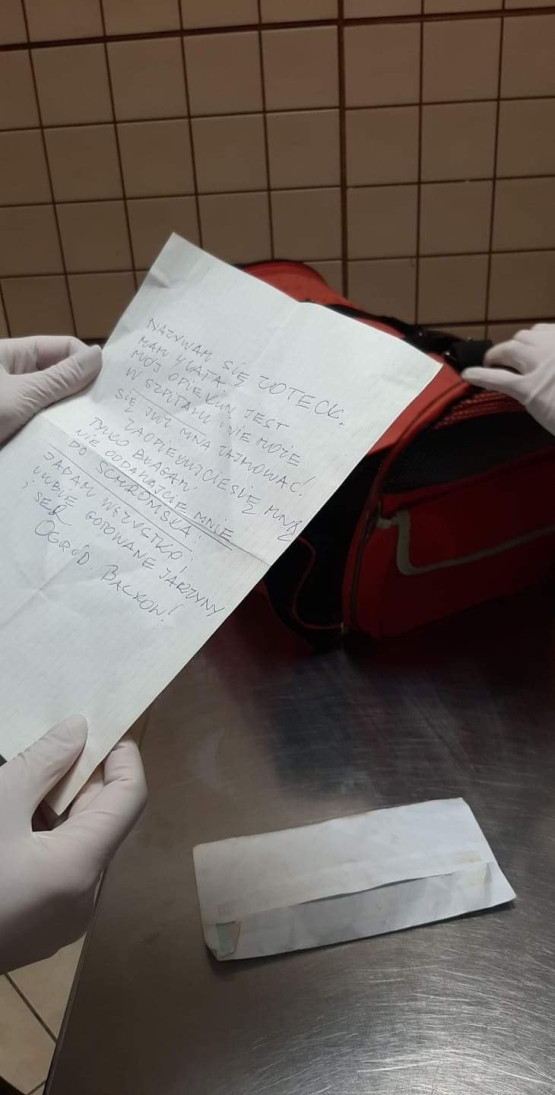 NAZYWAM SIĘ WOTECK.
MAM 4 LATA!
MÓJ OPIEKUN JEST
W SZPITALU. NIE MOŻE
SIĘ JUŻ MNĄ ZAJMOWAĆ!
ZAOPIEKUJCIE SIĘ MNĄ
TYLKO BŁAGAM
NIE ODDAWAJCIE MNIE
DO SCHRONISKA.
JADAM WSZYSTKO!
LUBIĘ GOTOWANE JARZYNY
I SER
OGRÓD